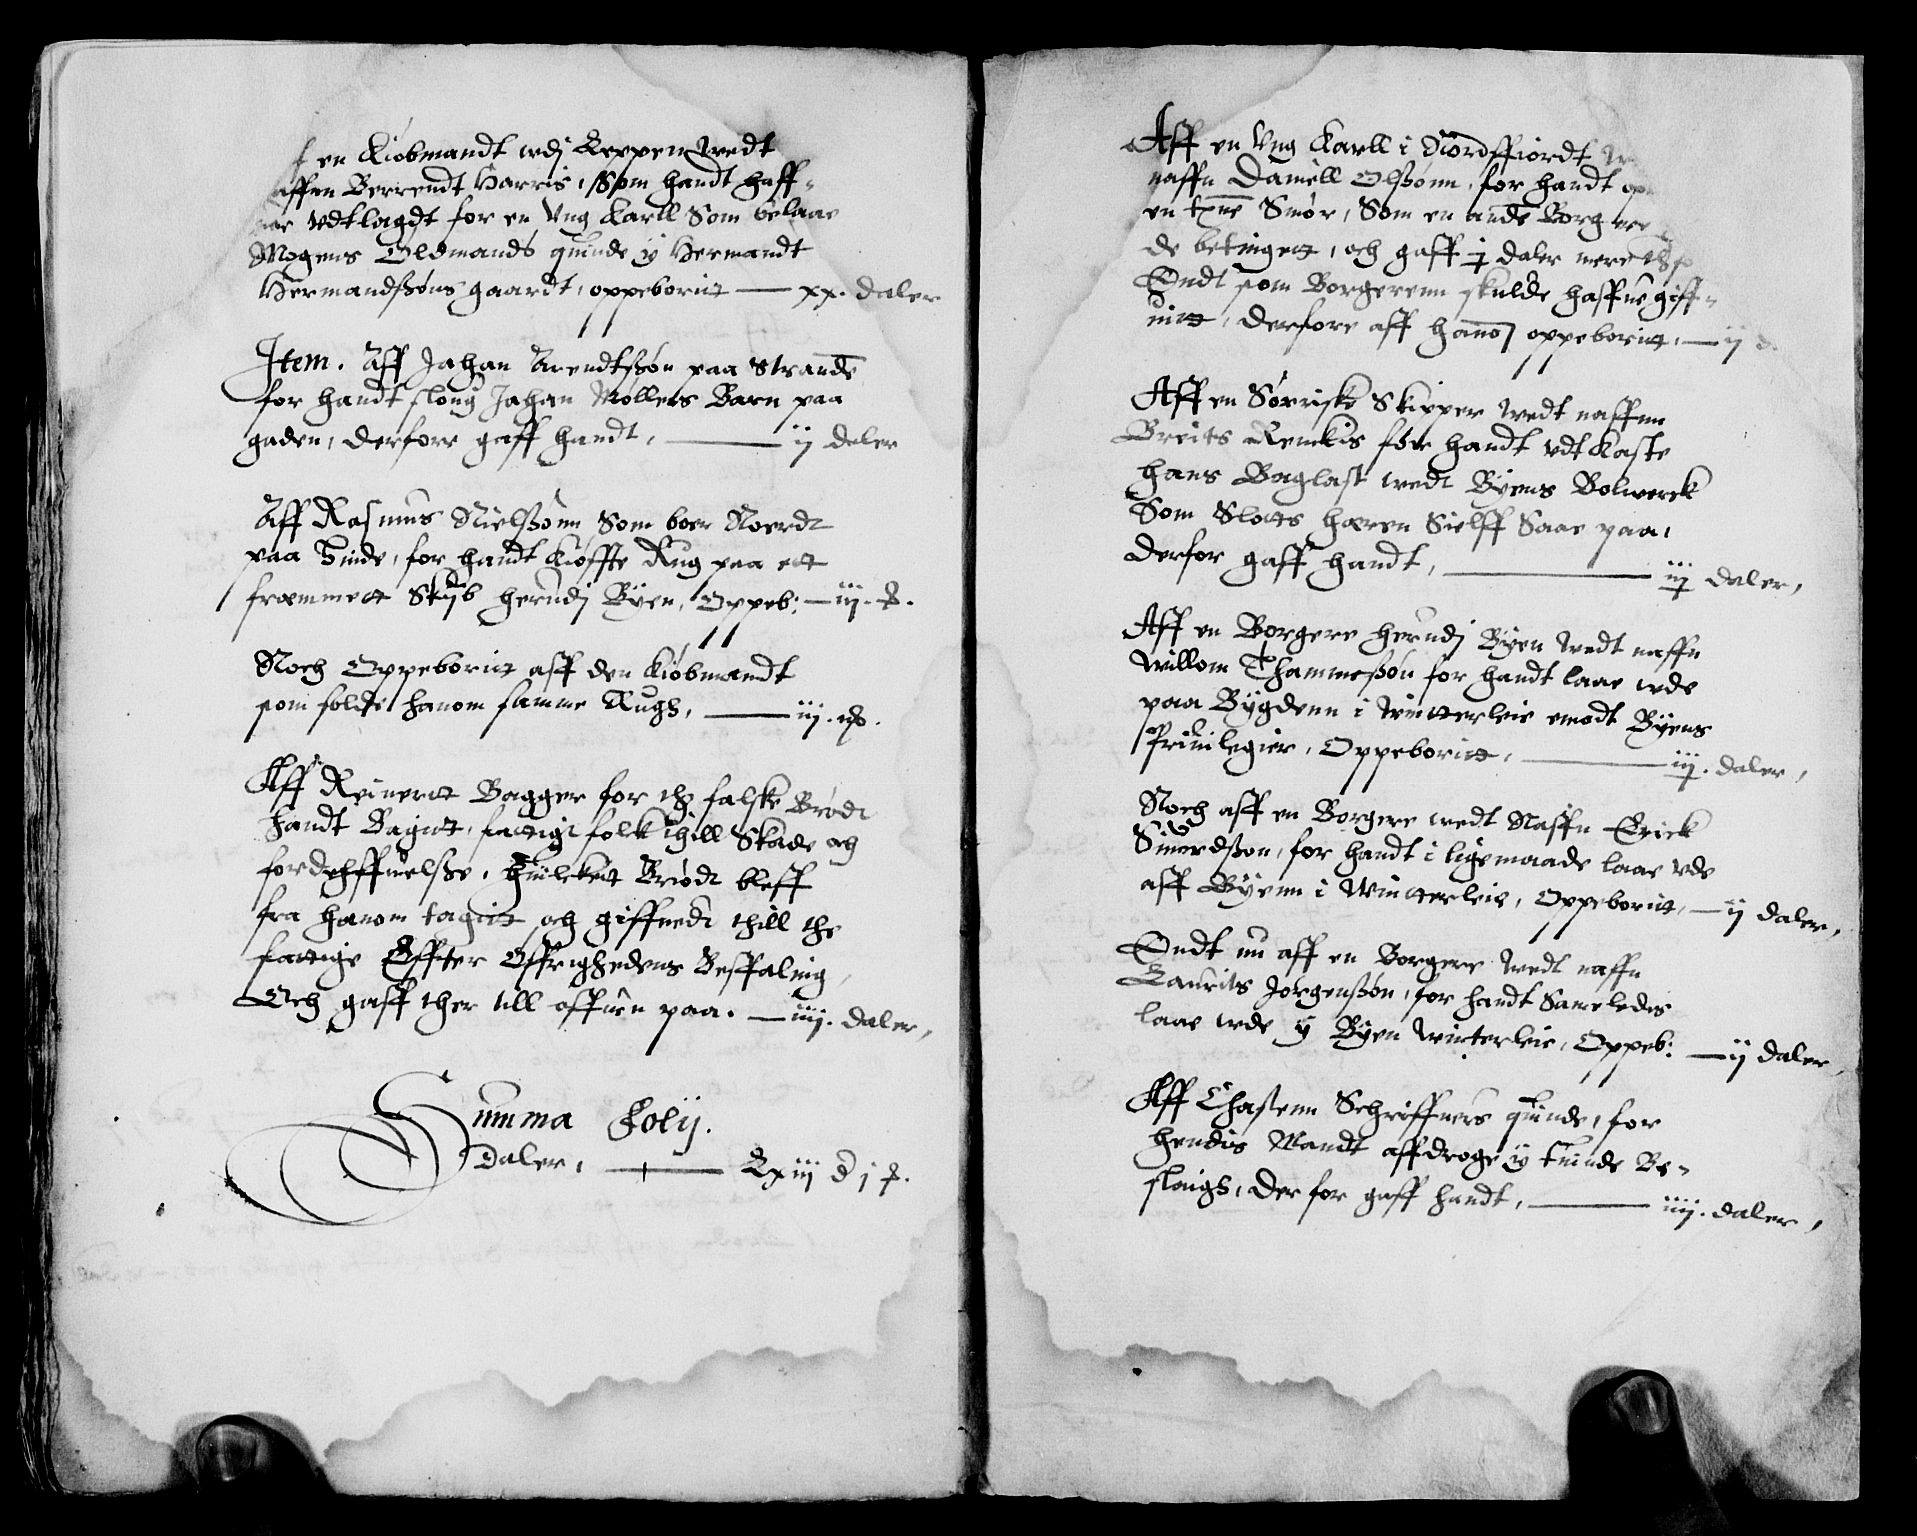 en Kiøbmandt wdj Leppen wedt
naffen Berrendt Harris, Som handt haff-
uer vdtlagdt for en Vng Karll Som belaae
Mogens Oldmands quinde y Hermandt
Hermandßøns gaardt, oppeborit — xx. daler
Item. Aff Jahan Arendtßøn paa Strande
for handt sloug Jahan Møllers Barn paa
gaden, derfore gaff handt, — ij daler
Aff Rasmus Nielßønn Som boer Noerdt
paa Sinde, for handt Kiøffte Rug paa ett
fræmmett Skijb herudj Byen, Oppeb: — iij.
Noch Oppeboritt aff den Kiøbmandt
som soldte hanom samme Rugh, — iij.
Aff Reinertt Bagger for thz falske Brødt
handt Bagitt, fattigt folk thill Skade och
fordeffuelße, huilckett Brødt bleff
fra hanom tagitt och giffuedt thill the
fattige Effter Øffrighedens Beffaling,
Och gaff ther till offuen paa. — iiij. daler,
Summa Folij.
Daler, — Lxiij d j
Aff en Vng Karll i Nordffiordt
naffn Daniell Olßønn, for handt
en tne Smør, Som en anden Borger
de betingett, och gaff j daler mere
Endt som Borgerenn skulde haffue giff-
uitt, derfore aff hanom oppeboritt, — ij d.
Aff en Nørriske Skipper wedt naffnn
Breits Remkis for handt vdt Kaste
hans Baglast wedt Byens Bolwerck
Som Slotts herren Sielff Saae paa,
derfor gaff handt, — iij daler,
Aff en Borgere herudj Byen wedt naffn
Willom Thammeßøn for handt laae wde
paa Bygdenn i Wintterleie emodt Byens
Priuilegier, Oppeboritt, — iij. daler,
Noch aff en Borgere wedt Naffn Erick
Siuerdßøn, for handt i ligemaade laae vde
aff Byenn i Wintterleie, Oppeboritt, — ij daler,
Endt nu aff en Borgere wedt naffn
Laurits Jørgenßøn, for handt Sameledis
laae wde y Byen Winterleie, Oppeb: — ij daler,
Aff Chastenn Schriffuers quinde, for
hendis Mandt affdroge y tuinde Be-
slaigh, derfor gaff handt, — iiij. daler,